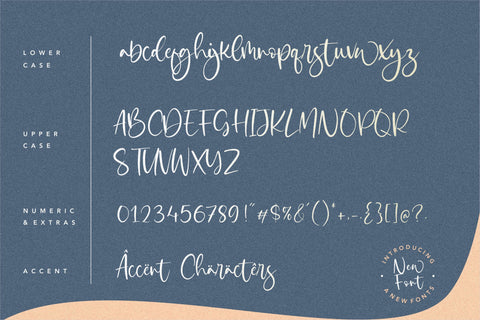 LOWER
CASE
abcdefghijklmnopqrstuvwxyz
UPPER
CASE
ABCDEFGHIJKLMNOPQR
STUVWXYZ
NUMERIC
& EXTRAS
0123456789!"#$%&'()*+,-.{}[]@?.
ACCENT
Âccënt Chäráctêrs
INTRODUCING
New
Font
A NEW FONTS